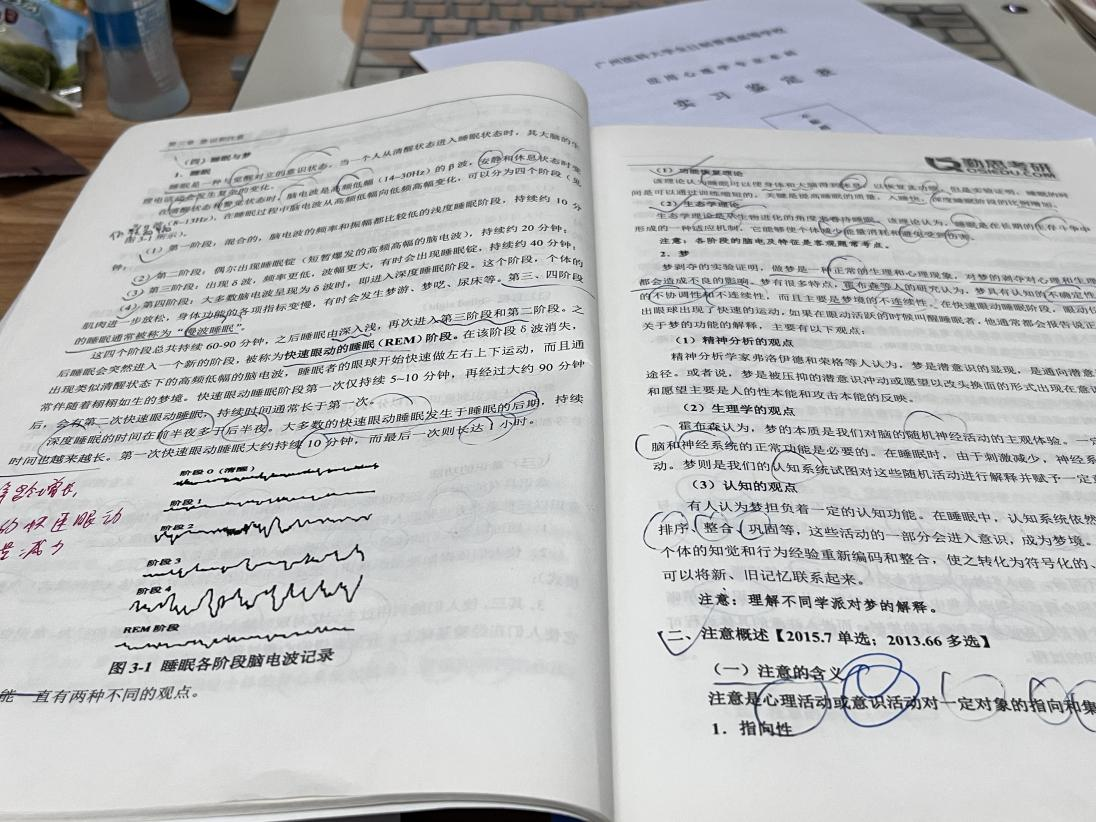 广州医科大学全日制普通高等学校
应用心理学专业本科
实 习 鉴 定 表
第三章 意识和注意
（四）睡眠与梦
1．睡眠
睡眠是一种与觉醒对立的意识状态，当一个人从清醒状态进入睡眠状态时，其大脑的生
理电活动会发生复杂的变化。
在清醒状态和警觉状态时，脑电波是高频低幅（14~30Hz）的β波，安静和休息状态时案
（8~13Hz），在睡眠过程中脑电波从高频低幅向低频高幅变化，可以分为四个阶段（见
图3-1所示）。
（1）第一阶段：混合的，脑电波的频率和振幅都比较低的浅度睡眠阶段，持续约 10 分
钟；
（2）第二阶段：偶尔出现睡眠锭（短暂爆发的高频高幅的脑电波），持续约 20 分钟；
（3）第三阶段：出现δ波，频率更低，波幅更大，有时会出现睡眠锭，持续约 40 分钟；
（4）第四阶段：大多数脑电波呈现为δ波时，即进入深度睡眠阶段。这个阶段，个体的
肌肉进一步放松，身体功能的各项指标变慢，有时会发生梦游、梦呓、尿床等。第三、四阶段
的睡眠通常被称为“慢波睡眠”。
这四个阶段总共持续 60-90 分钟，之后睡眠由深入浅，再次进入第三阶段和第二阶段。之
后睡眠会突然进入一个新的阶段，被称为快速眼动的睡眠（REM）阶段。在该阶段δ波消失，
出现类似清醒状态下的高频低幅的脑电波，睡眠者的眼球开始快速做左右上下运动，而且通
常伴随着栩栩如生的梦境。快速眼动睡眠阶段第一次仅持续 5~10 分钟，再经过大约 90 分钟
后，会有第二次快速眼动睡眠，持续时间通常长于第一次。
深度睡眠的时间在前半夜多于后半夜。大多数的快速眼动睡眠发生于睡眠的后期，持续
时间也越来越长。第一次快速眼动睡眠大约持续 10 分钟，而最后一次则长达 1 小时。
年龄增长，
的快速眼动
量减少
阶段 0（清醒）
阶段 1
阶段 2
阶段 3
阶段 4
REM 阶段
图 3-1 睡眠各阶段脑电波记录
能一直有两种不同的观点。
勤思考研
QSIEDU.COM
（1）功能恢复理论
该理论认为睡眠可以使身体和大脑得到休息，以恢复其功能。但是实验证明，睡眠的时
间是可以通过训练缩短的，关键是提高睡眠的质量，入睡快，深度睡眠阶段的比例增加。
（2）生态学理论
生态学理论是从生物进化的角度来看待睡眠。该理论认为，睡眠是在长期的生存斗争中
形成的一种适应机制，它能够使个体减少能量消耗和避免受到伤害。
注意：各阶段的脑电及特征是客观题常考点。
2．梦
梦剥夺的实验证明，做梦是一种正常的生理和心理现象，对梦的剥夺对心理和生理
都会造成不良的影响。梦有很多特点，霍布森等人的研究认为，梦具有认知的不确定性
的不协调性和不连续性，而且主要是梦境的不连续性。在快速眼动睡眠阶段，眼动仪
出眼球出现了快速的运动，如果在眼动活跃的时候叫醒睡眠者，他通常都会报告说正
关于梦的功能的解释，主要有以下观点：
（1）精神分析的观点
精神分析学家弗洛伊德和荣格等人认为，梦是潜意识的显现，是通向潜意
途径。或者说，梦是被压抑的潜意识冲动或愿望以改头换面的形式出现在意识
和愿望主要是人的性本能和攻击本能的反映。
（2）生理学的观点
霍布森认为，梦的本质是我们对脑的随机神经活动的主观体验。一定
脑和神经系统的正常功能是必要的。在睡眠时，由于刺激减少，神经系
动。梦则是我们的认知系统试图对这些随机活动进行解释并赋予一定意
（3）认知的观点
有人认为梦担负着一定的认知功能。在睡眠中，认知系统依然
排序、整合、巩固等，这些活动的一部分会进入意识，成为梦境。
个体的知觉和行为经验重新编码和整合，使之转化为符号化的、
可以将新、旧记忆联系起来。
注意：理解不同学派对梦的解释。
二、注意概述【2015.7 单选；2013.66 多选】
（一）注意的含义
注意是心理活动或意识活动对一定对象的指向和集
1．指向性